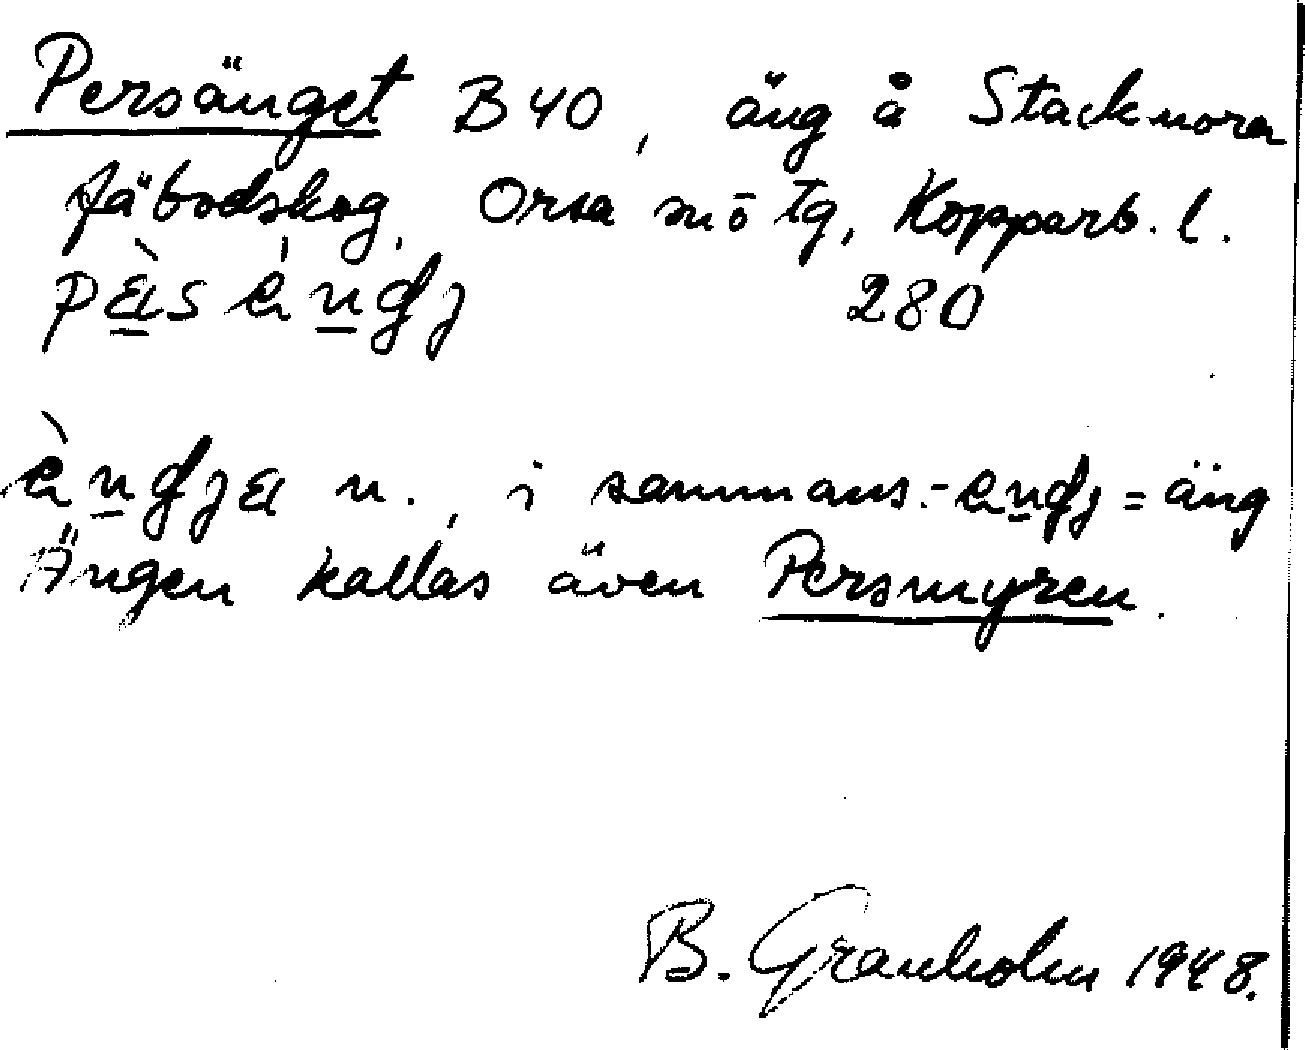 Persänget B 40, äng å Stackmora
fäbodskog, Orsa sn ö tg, Kopparb. l.
280
n., i sammans.- = äng
Ängen kallas även Persmyren.
B. Granholm 1948.